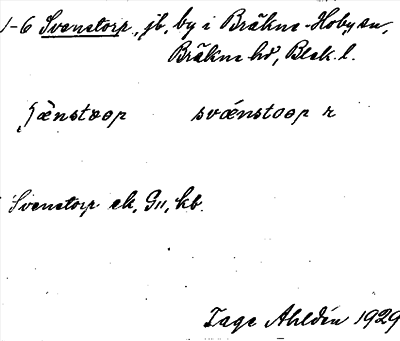 1-6 Svenstorp, jb, by i Bräkne-Hoby sn,
Bräkne hd, Blek. l.
svǽnstoɵp r
Svenstorp ek, G11, kb.
Tage Ahldén 1929